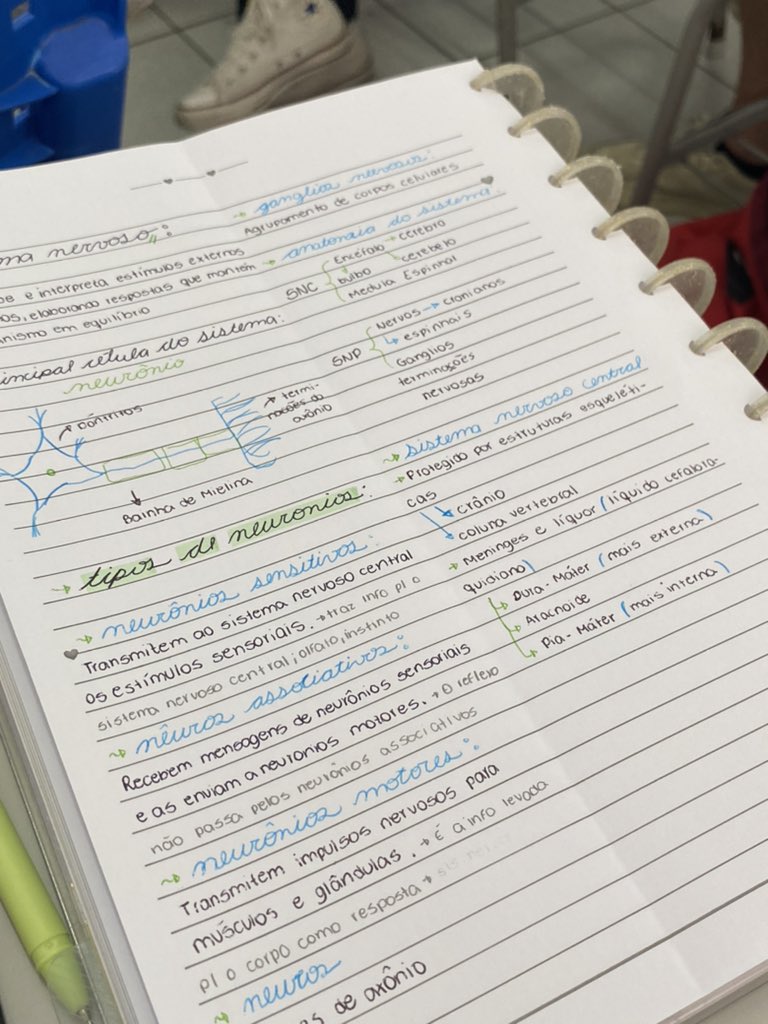 ma nervoso:
be e interpreta estímulos externos
os, elaborando respostas que mantém
nismo em equilíbrio
incipal célula do sistema:
neurônio
Dêntritos
termi-
nações do
axônio
Bainha de Mielina
tipos de neuronios:
neurônios sensitivos:
Transmitem ao sistema nervoso central
os estímulos sensoriais. → traz info p/ o
sistema nervoso central; olfato, instinto
nêuros associativos:
Recebem mensagens de neurônios sensoriais
e as enviam a neuronios motores. → O reflexo
não passa pelos neurônios associativos
neurônios motores:
Transmitem impulsos nervosos para
músculos e glândulas. → É a info levada
p/ o corpo como resposta →
neuros
s de axônio
→ ganglios nervosos:
Agrupamento de corpos celulares
→ anatomia do sistema:
SNC
Encéfalo → cerebro
cerebelo
bulbo
Medula Espinhal
SNP
Nervos → cranianos
espinhais
Ganglios
terminações
nervosas
sistema nervoso central
→ Protegido por estruturas esqueléti-
cas
crânio
coluna vertebral
→ Meninges e líquor (líquido cefalora-
quidiano)
Dura-Máter (mais externa)
Aracnoide
Pia-Máter (mais interna)